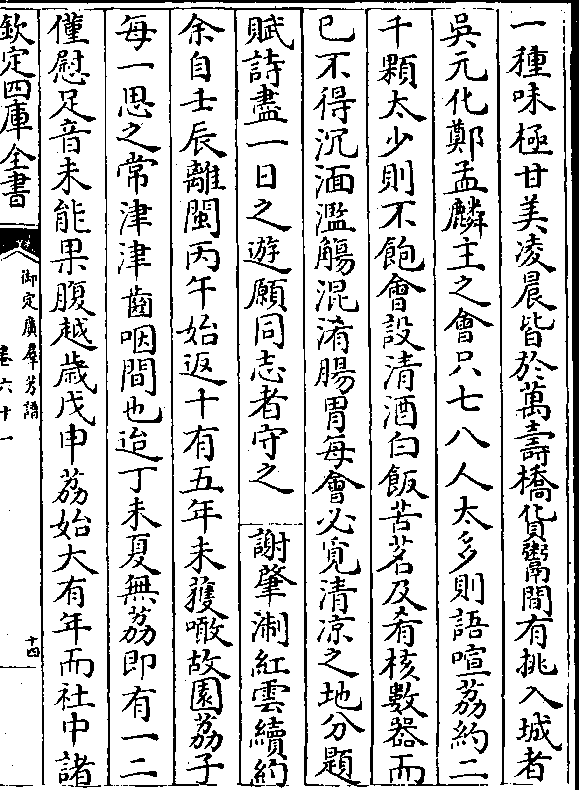 一種味極甘美凌晨皆於萬壽橋貨鬻間有挑入城者
吳元化鄭孟麟主之會只七八人太多則語喧荔約二
千顆太少則不飽會設清酒白飯苦茗及肴核數器而
已不得沉湎濫觴混淆腸胃每會必覓清凉之地分題
賦詩盡一日之遊願同志者守之 謝肇淛紅雲續約
余自壬辰離閩丙午始返十有五年未獲噉故園荔子
每一思之常津津齒咽間也迨丁未夏無荔即有一二
僅慰足音未能果腹越歲戊申荔始大有年而社中諸
欽定四庫全書
御定廣羣芳譜
卷六十一
十四